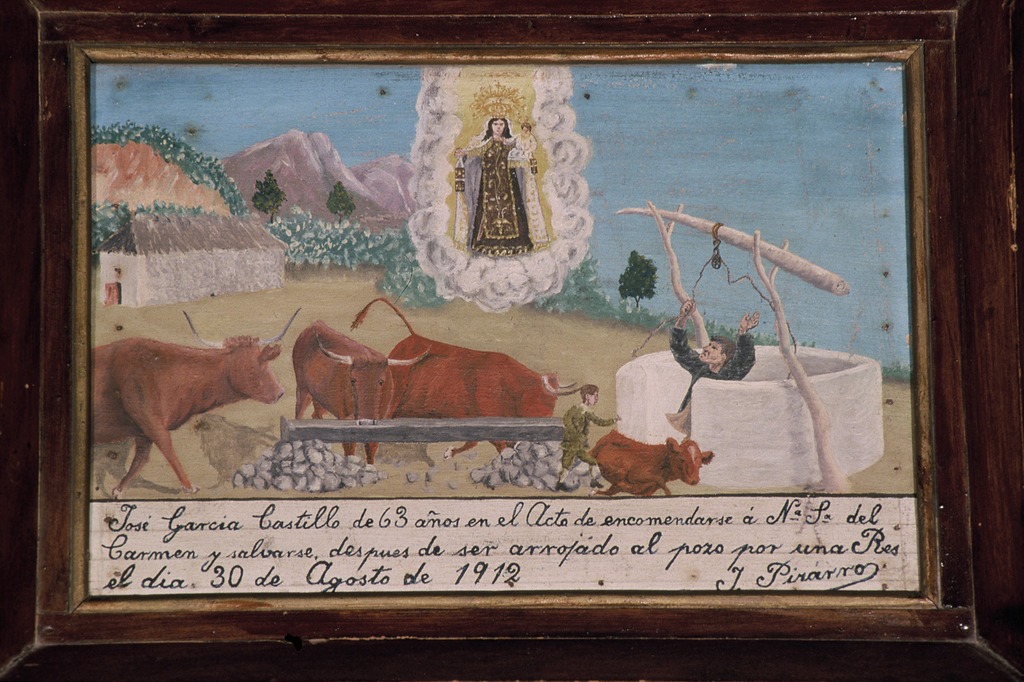 José Garcia Castillo de 63 años en el Acto de encomendarse á Nª Sª del
Carmen y salvarse, despues de ser arrojado al pozo por una Res
el dia 30 de Agosto de 1912
J. Pizárro